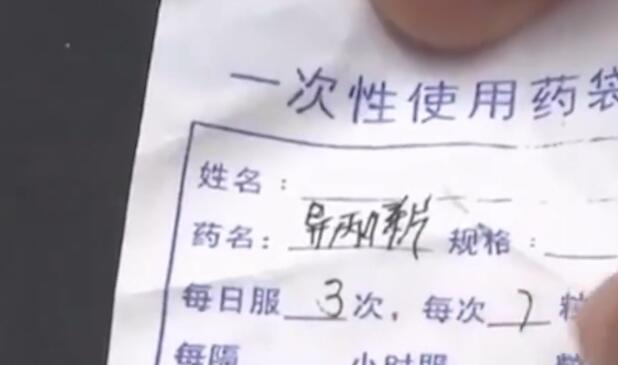 一次性使用药袋
姓名：
药名：异丙嗪片 规格：
每日服3次，每次1粒
每隔 小时服 粒